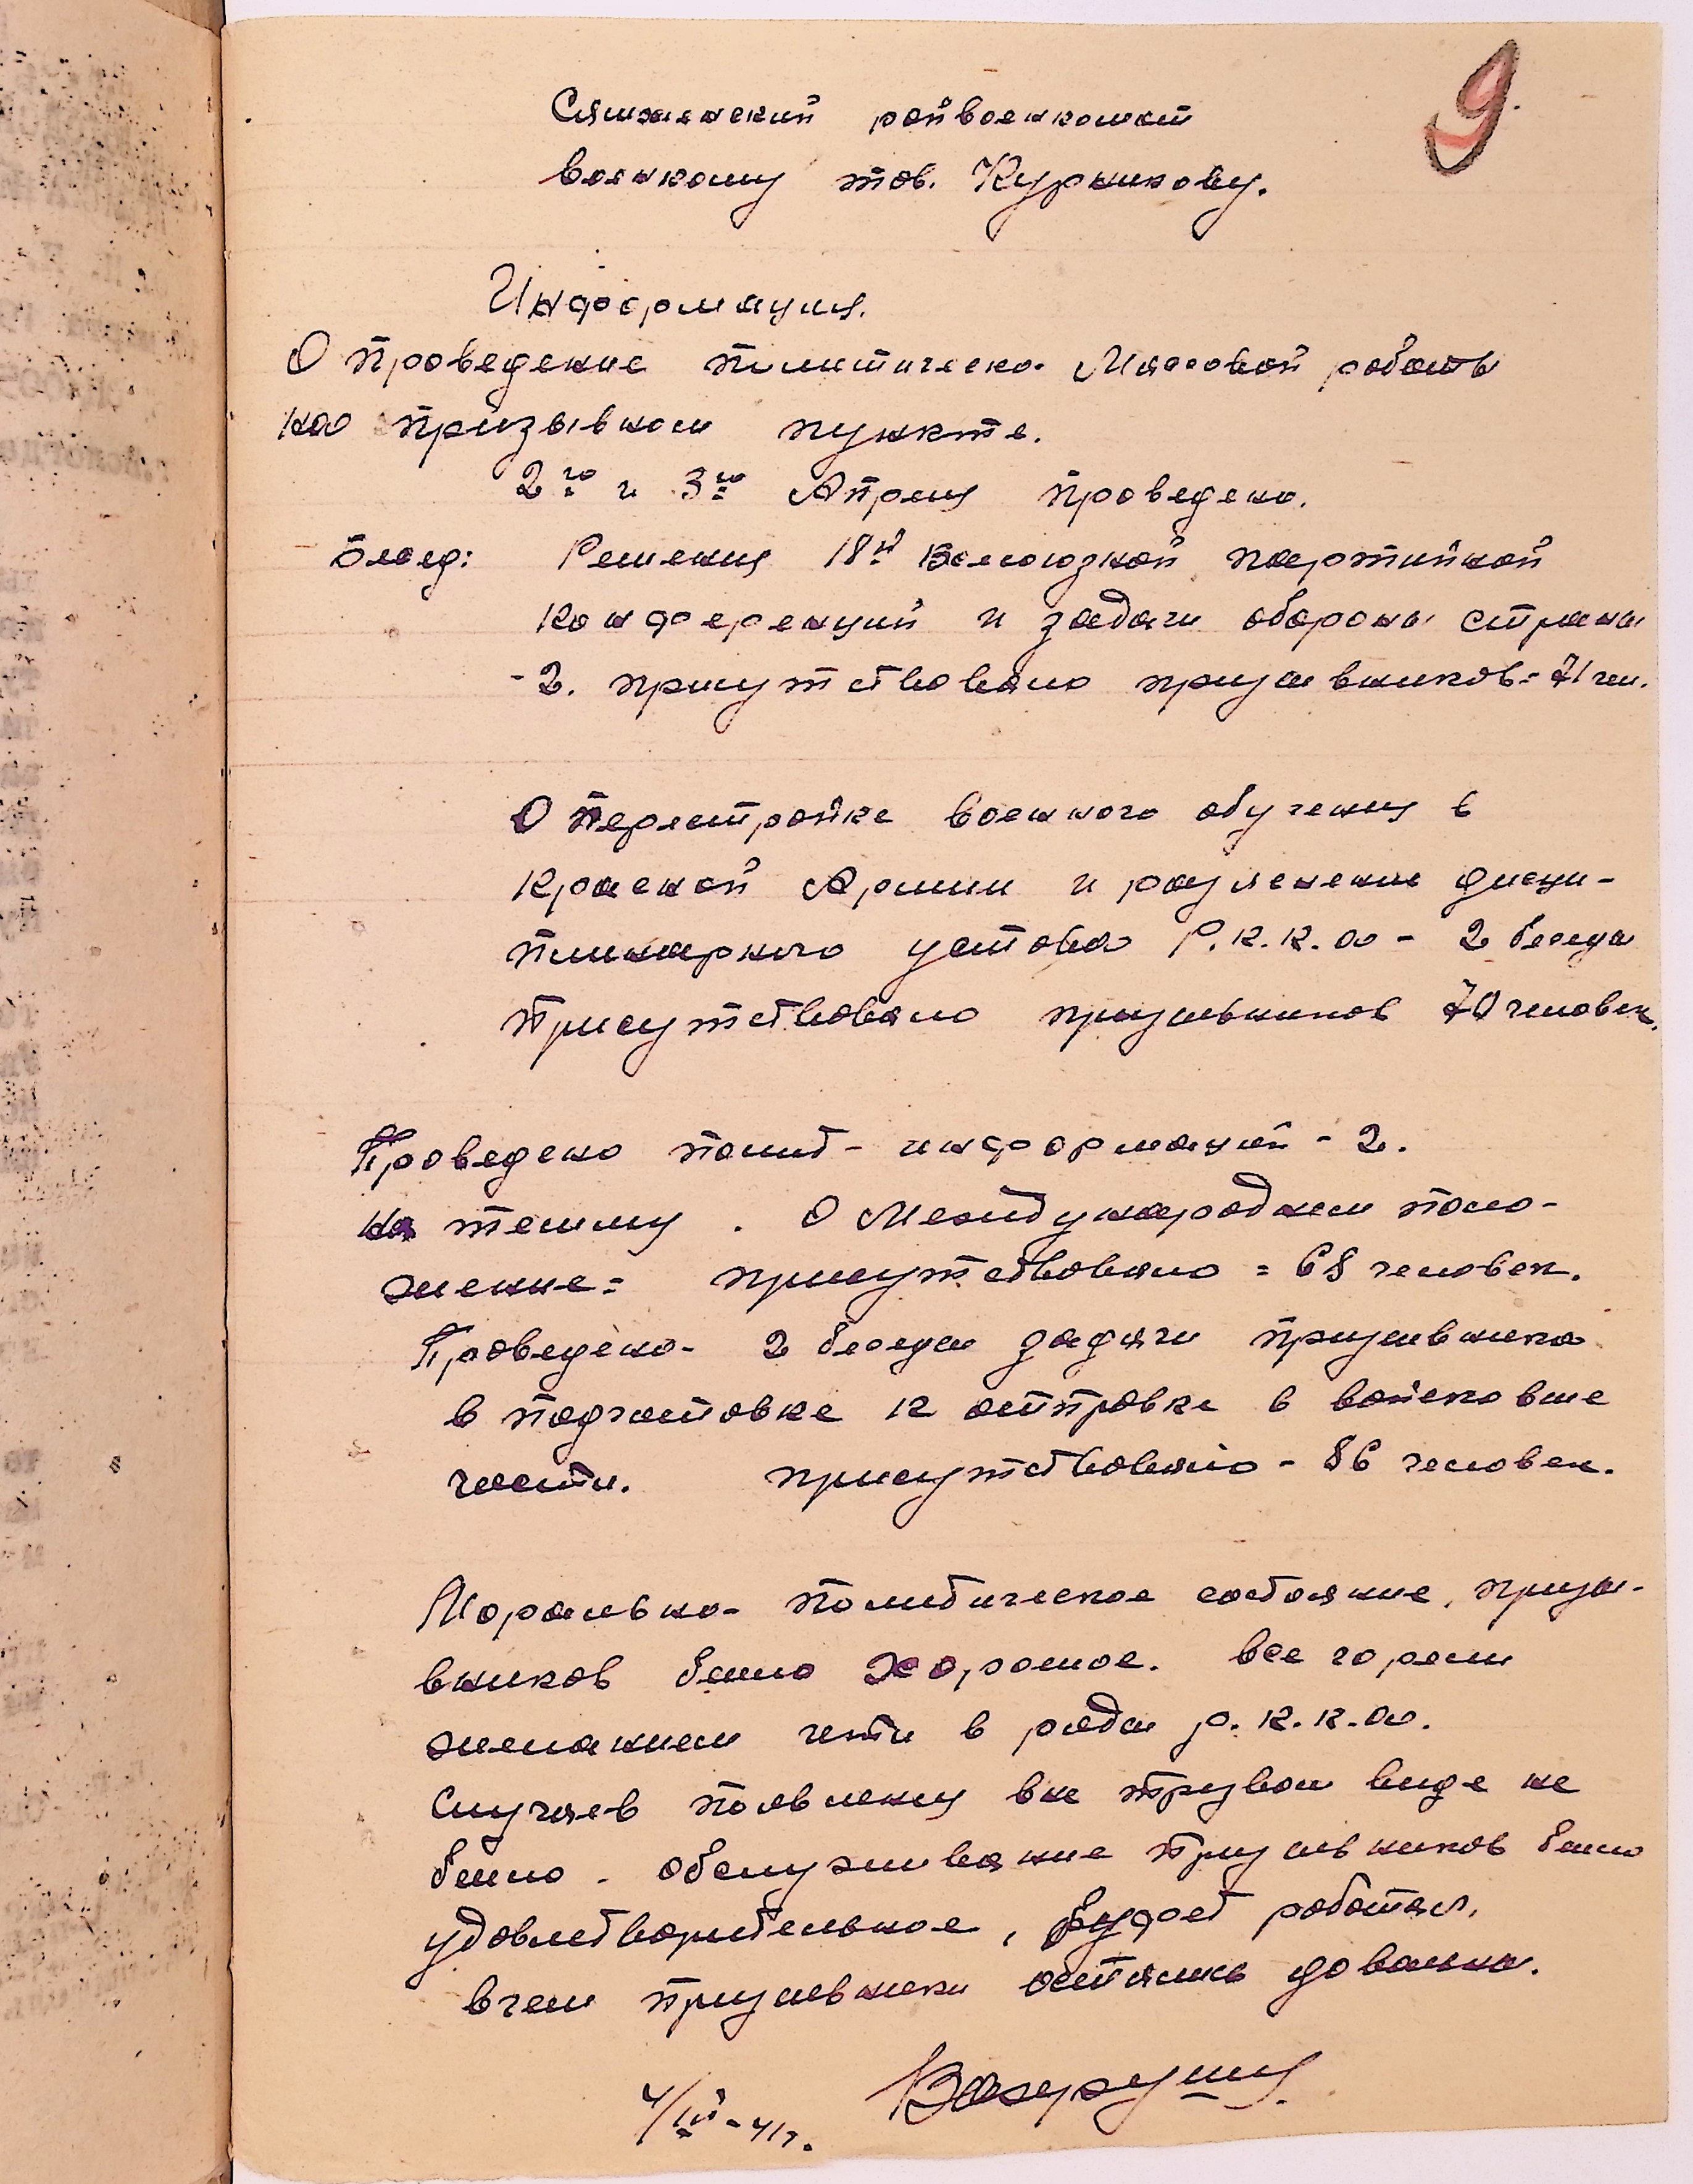 9
Сямженский райвоенкомат
военкому тов. Курникову.
Информация.
О проведение политическо-Массовой работы
на призывном пункте.
2го и 3го Апреля проведено.
Бесед: Решения 18й Всесоюзной партийной
конференций и задачи обороны страны
- 2. присутствовало призывников - 71 чел.
О перестройке военного обучения в
Красной Армии и разяснение дисци-
плинарного устава Р.К.К.А - 2 беседы
присутствовало призывников 70 человек.
Проведено полит-информаций - 2.
на темму. О Международном поло-
жение = присутствовало = 68 человек.
Проведено - 2 беседы задачи призывника
в подготовке к отправке в войсковые
части. присутствовало - 86 человек.
Морально-политическое состояние призы-
вников было хорошое. все горели
желанием итти в ряды р.к.к.А.
Случаев появления вне трезвом виде не
было. обслуживание призывников было
удовлетворительное, буфет работал.
вчем призывники остались довольны.
4/IV-41г.